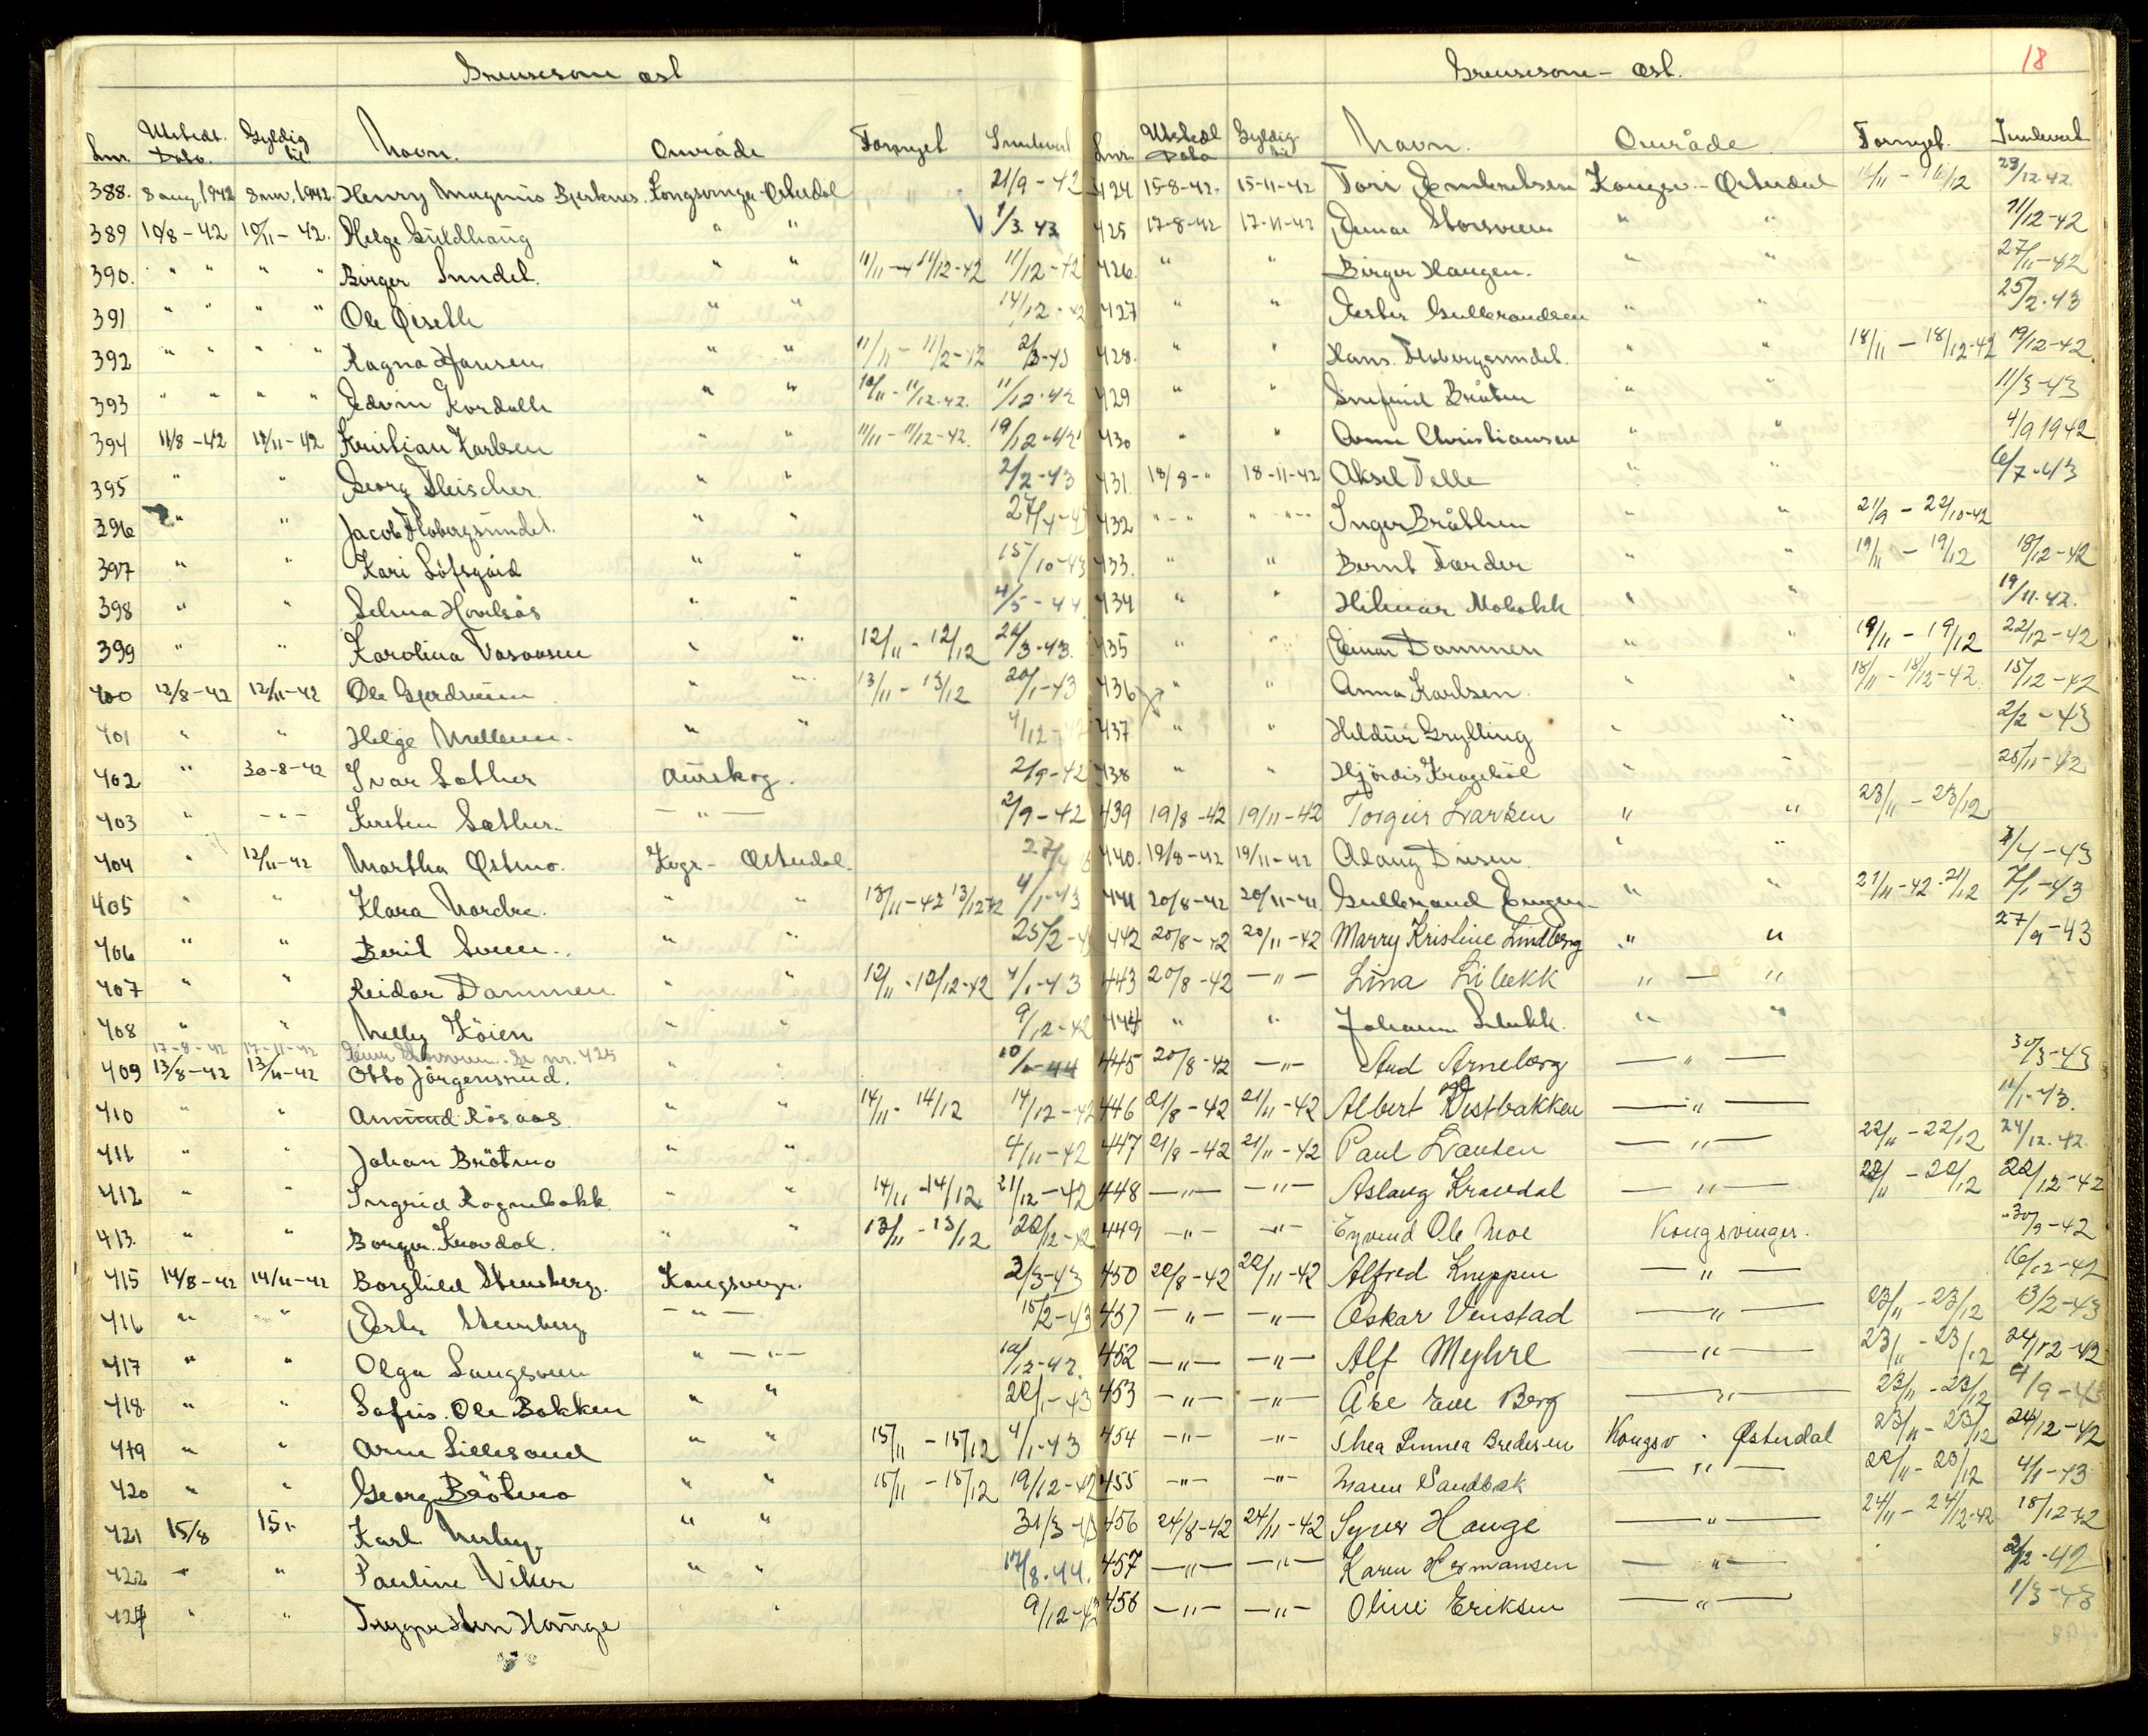 Grensesone øst
Lnr. Utstedt Dato. Gyldig til Navn. Område Fornyet Innlevert
388. 8 aug. 1942 8 nov. 1942. Henry Magnus Bjerknes. Kongsvinger-Østerdal 21/9-42
389 10/8-42 10/11-42. Helge Guldhaug " " V 1/3 43
390. " " " " Birger Sundet. " " 11/11 - 11/12-42 11/12-42
391 " " " " Ole Øiseth " " 14/12-42
392 " " " " Ragna Hansen " " 11/11 - 11/12-42 2/3-43
393 " " " " Edvin Kordahl " " 10/11 - 11/12-42. 11/12-42
394 11/8-42 11/11-42 Kristian Karlsen " " 11/11-11/12-42. 19/12-42
395 " " Georg Fleischer. " " 2/2-43
396 " " Jacob Flobergsundet. " " 27/4-43
397 " " Kari Löfsgård " " 15/10-43
398 " " Selma Hovelsås " " 4/5-44
399 " " Karolina Vasaasen " " 12/11 - 12/12 24/3-43.
400 12/8-42 12/11-42 Ole Gjerdrum " " 13/11 - 13/12 20/1-43
401 " " Helge Mellem. " " 4/12-42
402 " 30-8-42 Ivar Sæther Aurskog. 2/9-42
403 " -"- Kirsten Sæther. -"- 2/9-42
404 " 12/11-42 Martha Østmo. Kvgr- Østerdal. 27/4
405 " " Klara Nordre. " " 13/11-42 13/12-42 4/1-43
406 " " Berit Sveen. " " 25/2-43
407 " " Reidar Dammen " " 12/11-12/12-42 4/1-43
408 " " Nelly Köien " " 9/12-42
17-8-42 17-11-42 Einar Storsveen. Se nr. 425
409 13/8-42 13/11-42 Otto Jörgensrud. " " 10/1-44
410 " " Amund Rösaas. " " 14/11- 14/12 14/12-42
411 " " Johan Brötmo " " 4/11-42
412 " " Ingrid Rognebakk. " " 14/11 - 14/12 21/12-42
413. " " Borger Kravdal. " " 13/11 - 13/12 22/12-42
415 14/8-42 14/11-42 Borghild Stensberg. Kongsvinger. 2/3-43
416 " " Ester Stensberg -"- 15/2-43
417 " " Olga Langsveen " -"- 12/12-42.
418. " " Sofus Ole Bakken " " 20/1-43
419 " " Arne Lillesand " " 15/11 - 15/12 4/1-43
420 " " Georg Brötmo " " 15/11 - 15/12 19/12-42
421 15/8 15" Karl Nerby. " " 31/3-43
422 " " Pauline Viker " " 17/8-44.
424 " " Trygve Sten Hauge " 9/12-42
18
Grensesone - øst.
Lnr. Utstedt Dato Gyldig til Navn. Område Fornyet. Innlevert
424 15-8-42. 15-11-42 Tori Kongsv.- Østerdal 16/11 - 16/12 23/12 42.
425 17-8-42 17-11-42 Einar Storsveen " " 11/12-42
426. " " Birger Haugen. " " 27/11-42
427 " " Ester Gulbrandsen " " 25/2-43
428. " " Hans Flobergsundet. " " 18/11 - 18/12-42 19/12-42.
429 " " Bråten " " 11/3-43
430 " " Anna Christiansen " " 4/9 1942
431. 18/8-" 18-11-42 Aksel Telle " " 6/7-43
432 "-" "-" Inger Bråthen " " 21/9 - 22/10-42
433. " " Bernt Tørder " " 19/11 - 19/12 18/12-42
434 " " Hilmar Mobakk " " 19/11-42.
435 " " Einar Dammen " " 19/11 - 19/12 22/12-42
436 " " Anna Karlsen. " " 18/11 - 18/12-42. 15/12-42
437 " " Heldur Grylling " " 2/2-43
438 " " Hjördis " " 25/11-42
439 19/8-42 19/11-42 Torgeir Larsen " " 23/11 - 23/12
440. 19/8-42 19/11-42 Aslaug Diesen. " " 1/4-43
441 20/8-42 20/11-42. Gulbrand Engen. " " 21/11-42-21/12 7/1-43
442 20/8-42 20/11-42 Marry Kristine Lindberg " " 27/9-43
443 20/8-42 -"- Lina Libekk " - "
444 " " Johann " "
445 20/8-42 -"- Aud Arneberg -"- 30/3-43
446 21/8-42 21/11-42 Albert Vestbakken -"- 11/1-43.
447 21/8-42 21/11-42 Paul -"- 22/11 - 22/12 24/12-42.
448 -"- -"- Aslaug Kravdal -"- 22/11 - 22/12 22/12-42
449 -"- -"- Eyvind Ole Moe Kongsvinger. 30/9-42
450 22/8-42 22/11-42 Alfred Kneppen -"- 16/12-42
451 -"- -"- Oskar Venstad -"- 23/11 - 23/12 13/2-43
452 -"- -"- Alf Myhre -"- 23/11 - 23/12 24/12-42
453 -"- -"- Åse Eve Berg -"- 23/11 - 23/12 9/9-43
454 -"- -"- Thea Linnea Bredesen Kongsv - Østerdal 23/11 - 23/12 24/12-42
455 -"- -"- Maren Sandbæk -"- 22/11- 23/12 4/1-43
456 24/8-42 24/11-42 Syver Hauge -"- 24/11 - 24/12-42 18/12-42
457 -"- -"- Karen Hermansen -"- 2/2-42
458 -"- -"- Oline Eriksen -"- 1/3-43